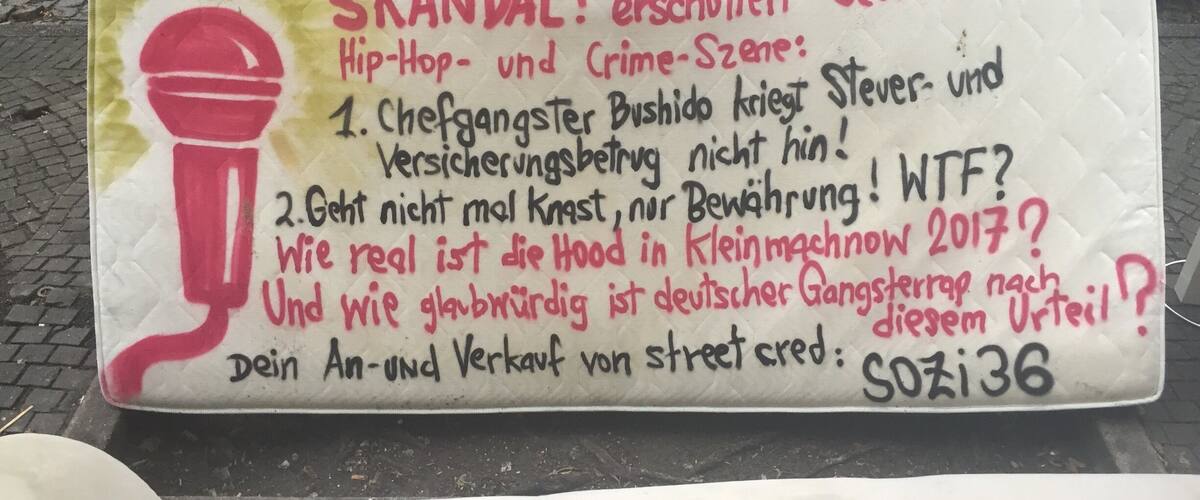 SKANDAL! erschüttert
Hip-Hop- und Crime-Szene:
1. Chefgangster Bushido kriegt Steuer- und
Versicherungsbetrug nicht hin!
2. Geht nicht mal Knast, nur Bewährung! WTF?
Wie real ist die Hood in Kleinmachnow 2017?
Und wie glaubwürdig ist deutscher Gangsterrap nach
diesem Urteil?
Dein An- und Verkauf von street cred: SOZi36